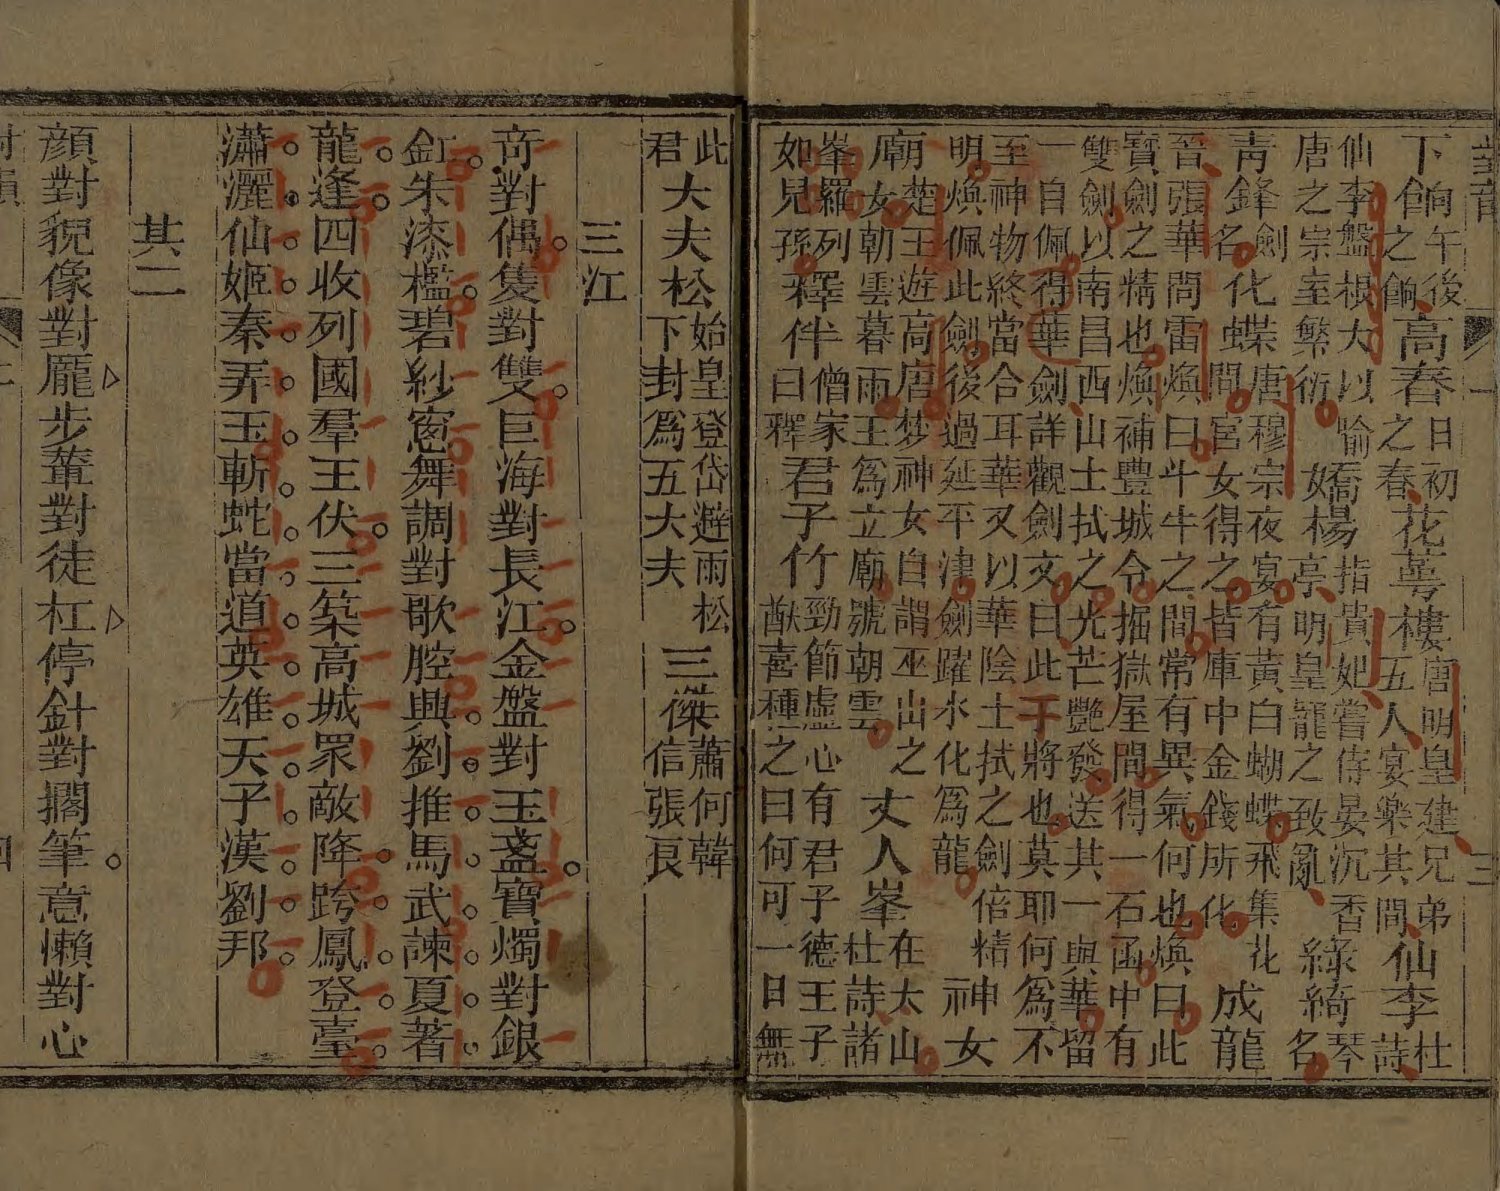 對韻 三
下餉午後之餉高舂日初之春花萼樓唐明皇建兄弟五人宴樂其間仙李杜詩
仙李盤根大以喻唐之宗室繁衍嬌楊指貴妃嘗侍晏沉香亭明皇寵之致亂綠綺琴名
青鋒劍名化蝶唐穆宗夜宴有黃白蝴蝶飛集花間宮女得之皆庫中金錢所化成龍
晉張華問雷煥曰斗牛之間常有異氣何也煥曰此寶劍之精也煥補豐城令掘獄屋間得一石函中有
雙劍以南昌西山土拭之光芒艷發送其一與華留一自佩得華劍詳觀劍文曰此干將也莫耶何為不
至神物終當合耳華又以華陰土拭之劍倍精明煥佩此劍後過延平津劍躍水化為龍神女
廟楚王遊高唐夢神女自謂巫山之女朝雲暮雨王為立廟號朝雲丈人峯在太山杜詩諸
峯羅列如兒孫釋伴僧家曰釋君子竹勁節虛心有君子德王子猷喜種之曰何可一日無
此君大夫松始皇登岱避雨松下封為五大夫三傑蕭何韓信張良
三江
奇對偶隻對雙巨海對長江金盤對玉盞寶燭對銀
釭朱漆檻碧紗窗舞調對歌腔興劉推馬武諫夏著
龍逢四收列國羣王伏三築高城眾敵降跨鳳登臺
瀟灑仙姬秦弄玉斬蛇當道英雄天子漢劉邦
其二
顏對貌像對龐步輦對徒杠停針對擱筆意懶對心
對韻 四